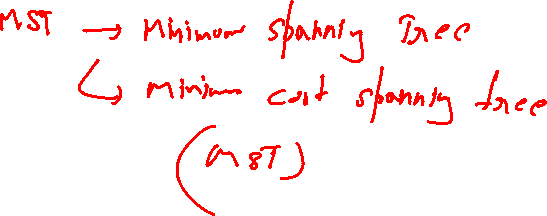 MST → Minimum spanning Tree
↳ minimum cost spanning tree
(MST)